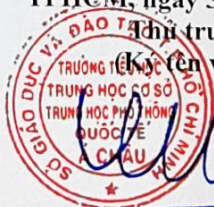 HCM, ngày
Thủ trư
(Ký tên v
SỞ GIÁO DỤC VÀ ĐÀO TẠO T.P HỒ CHÍ MINH
TRƯỜNG TIỂU HỌC
TRUNG HỌC CƠ SỞ
TRUNG HỌC PHỔ THÔNG
QUỐC TẾ
Á CHÂU